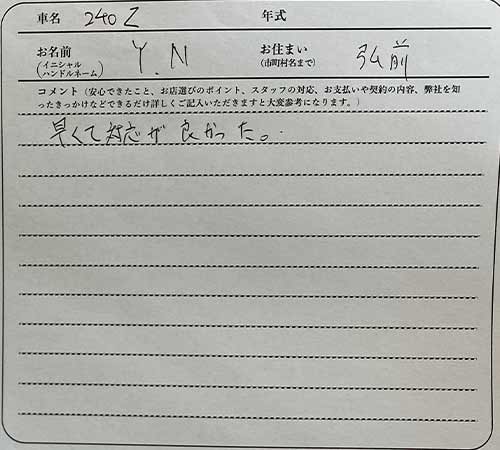 車名 240Z 年式
お名前 (イニシャル ハンドルネーム) Y.N お住まい (市町村名まで) 弘前
コメント（安心できたこと、お店選びのポイント、スタッフの対応、お支払いや契約の内容、弊社を知
ったきっかけなどできるだけ詳しくご記入いただきますと大変参考になります。）
早くて対応が良かった。